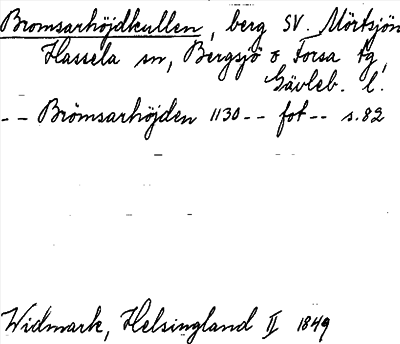 Bromsarhöjdkullen, berg SV. Mörtsjön
Hassela sn, Bergsjö o Forsa tg,
Gävleb. l.
-- Brömsarhöjden 1130 -- fot -- s. 82
Widmark, Helsingland II 1849